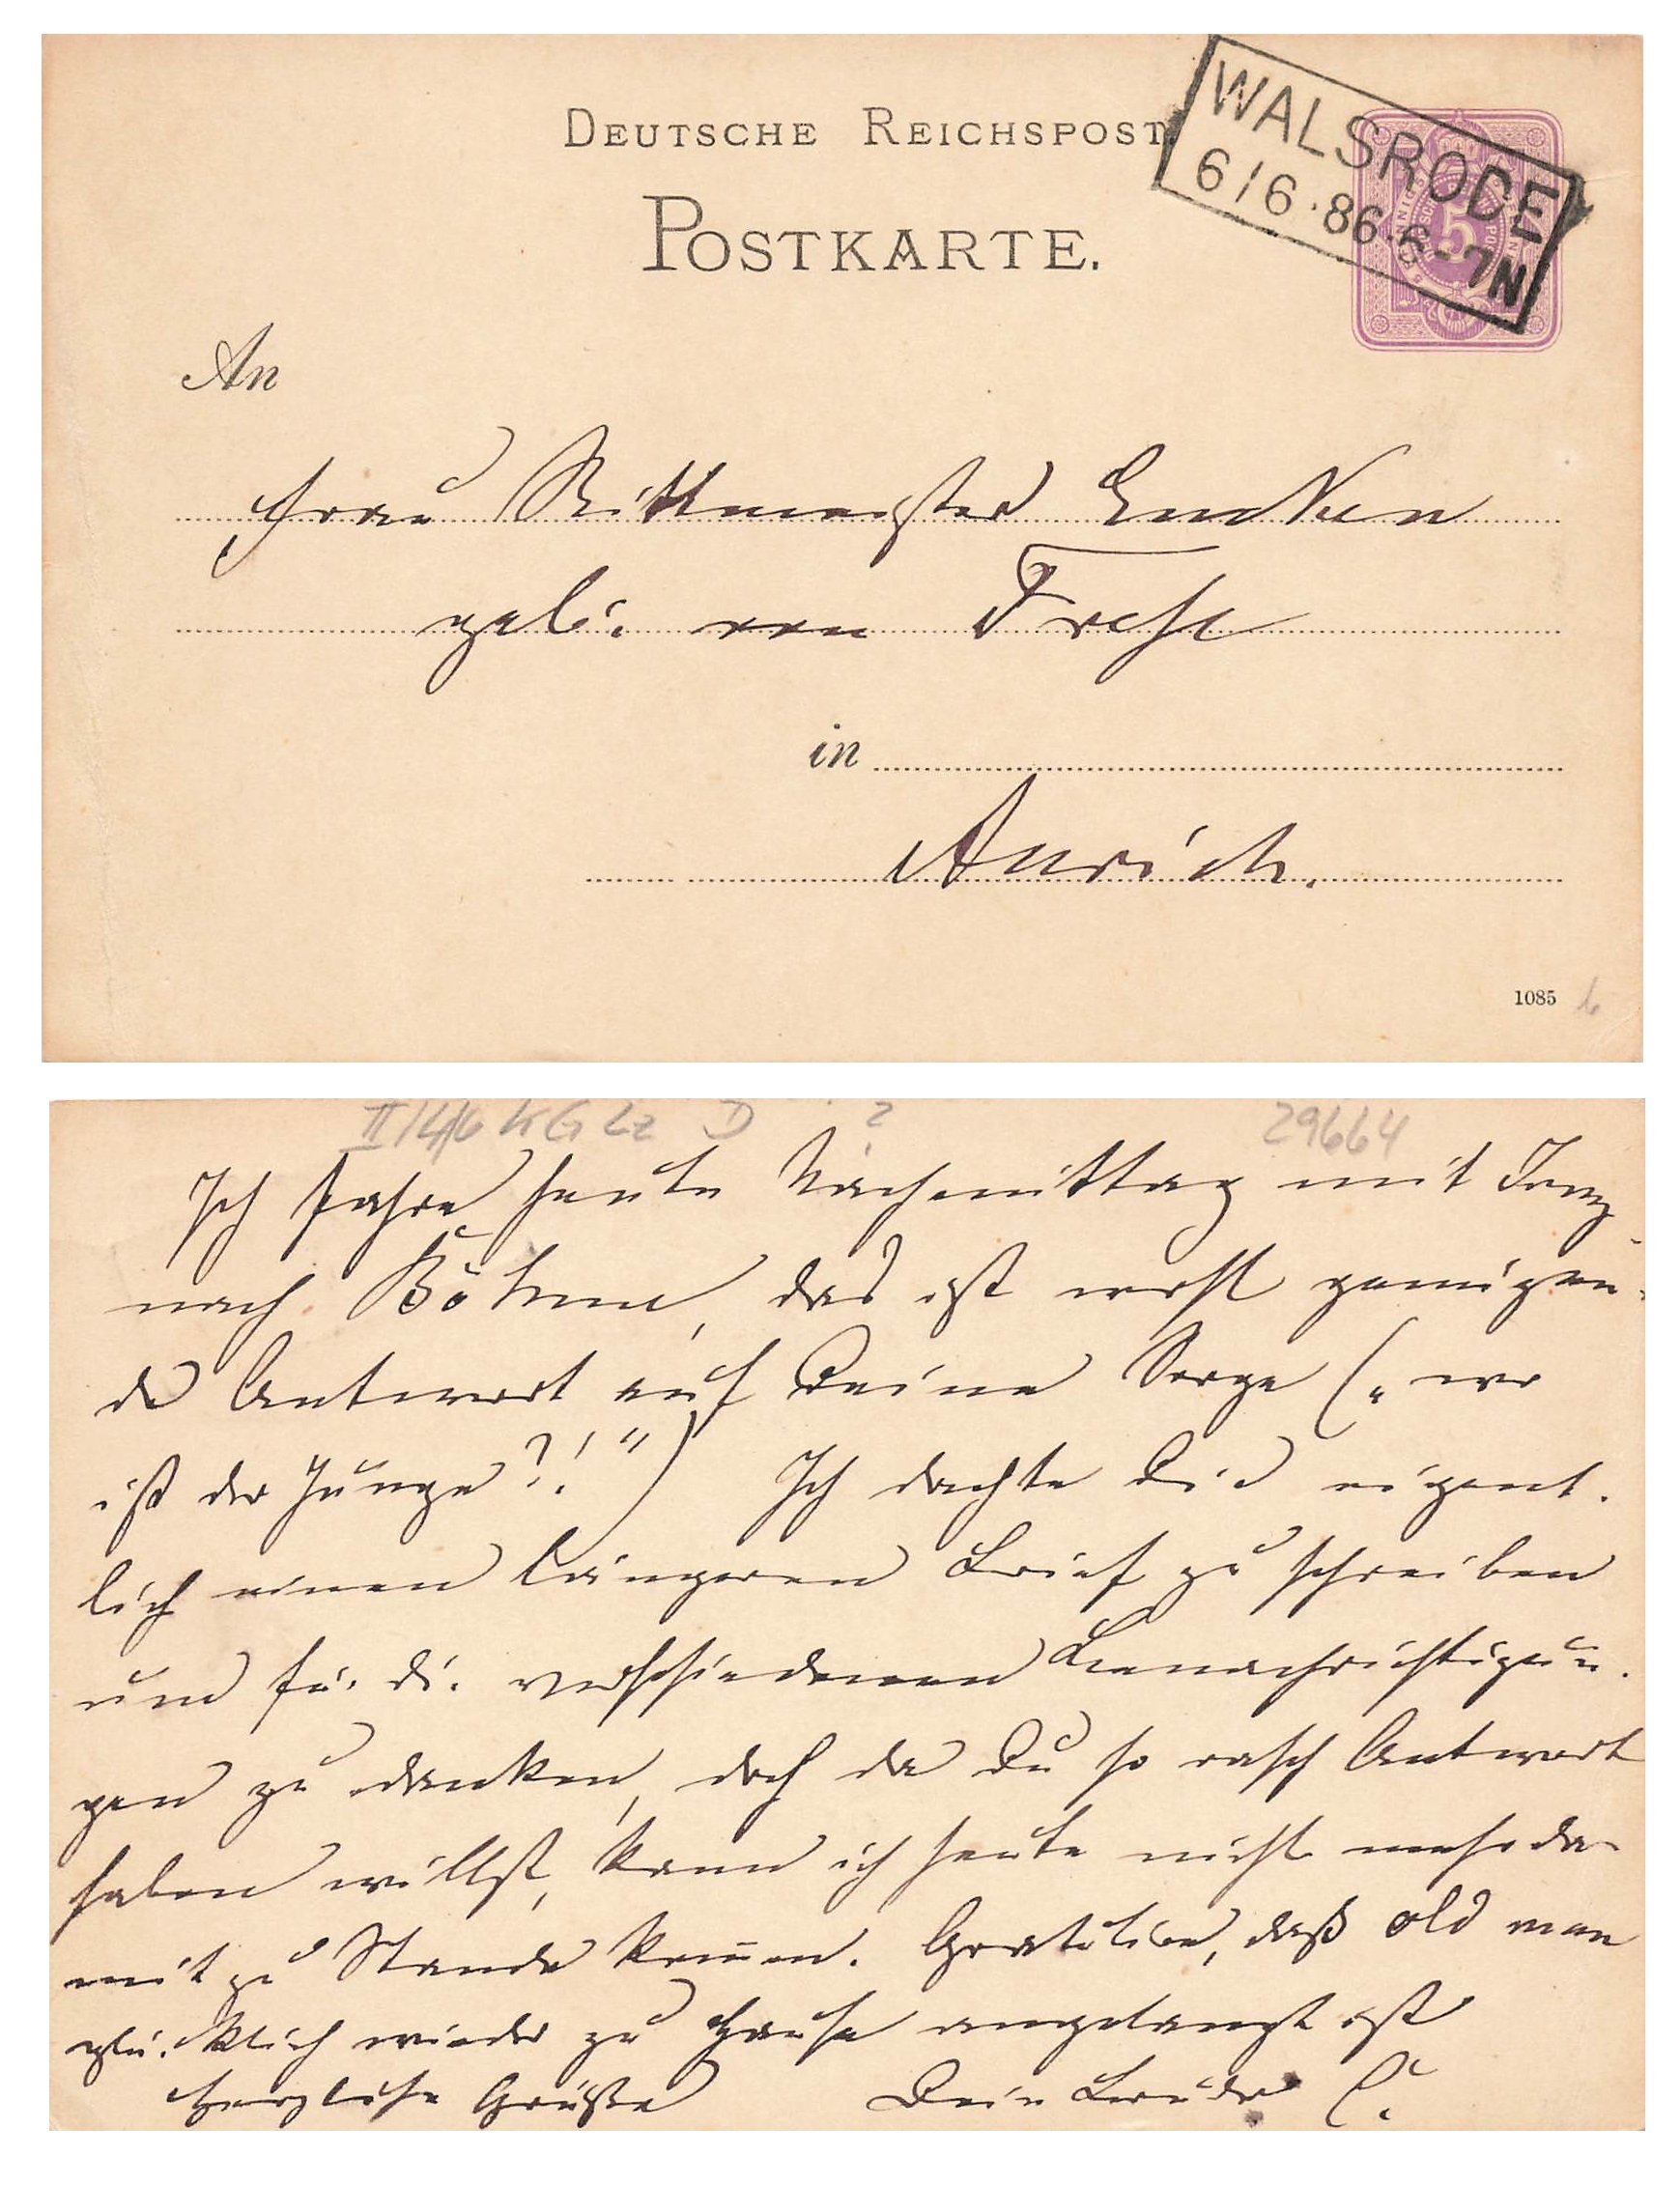 DEUTSCHE REICHSPOST
WALSRODE
6/6.86.6-7N
POSTKARTE.
An
Frau Rittmeister
geb. von Frese
in
Aurich.
1085
29664
Ich fahre heute Nachmittag mit
nach Böhme, das ist wohl genügen-
de Antwort auf Deine Sorge („wo
ist der Junge?!“) Ich dachte Dir eigent-
lich einen längeren Brief zu schreiben
und für die verschiedenen Benachrichtigun-
gen zu danken, doch da Du so rasch Antwort
haben willst, kann ich heute nicht mehr da-
mit zu Stande kom̄en. Gratulire, daß old man
glücklich wieder zu Hause angelangt ist
Herzliche Grüße Dein Bruder C.